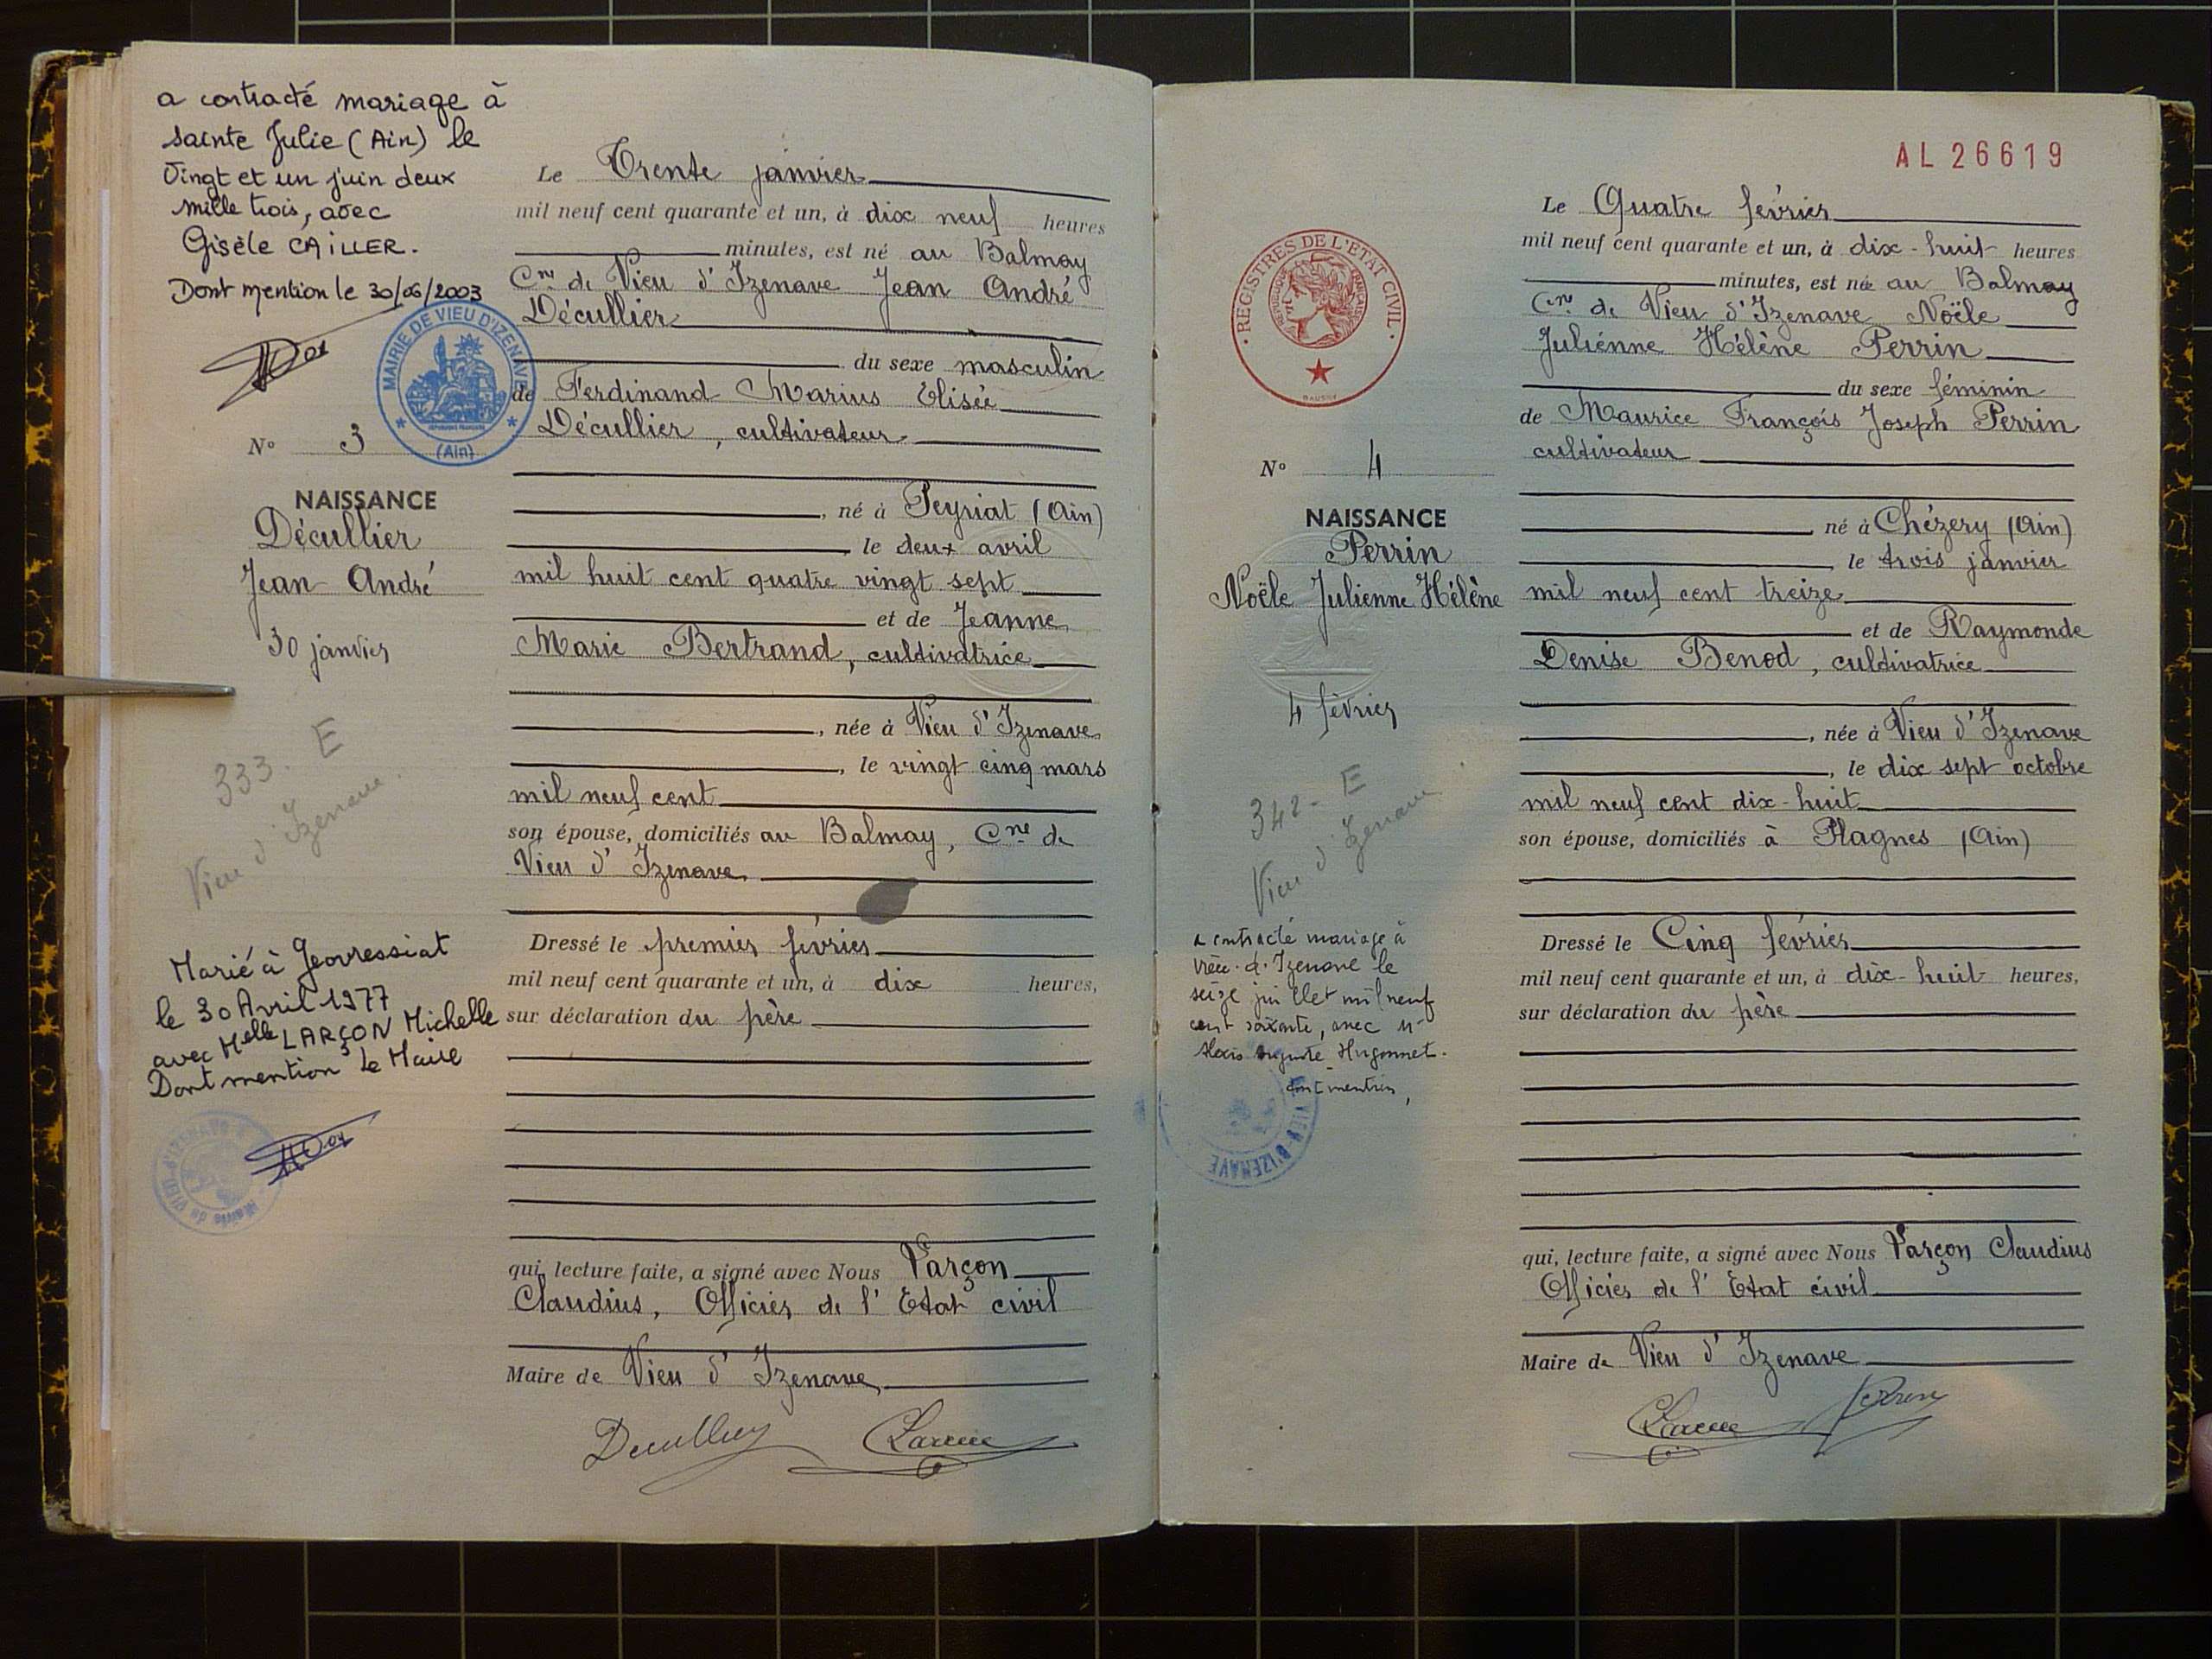 a contracté mariage à
sainte Julie (Ain) le
Vingt et un juin deux
mille trois, avec
Gisèle CAILLER.
Dont mention le 30/06/2003
MAIRIE DE VIEU D'IZENAVE
(Ain)
N° 3
NAISSANCE
Décullier
Jean André
30 janvier
333 - E
Vieu d'Izenave.
Marié à Geovressiat
le 30 Avril 1977
avec Melle LARÇON Michelle
Dont mention Le Maire
Le Trente janvier
mil neuf cent quarante et un, à dix neuf heures
minutes, est né au Balmay
Cne de Vieu d'Izenave Jean André
Décullier
du sexe masculin
de Ferdinand Marius Elisée
Décullier, cultivateur
, né à Peyriat (Ain)
, le deux avril
mil huit cent quatre vingt sept
et de Jeanne
Marie Bertrand, cultivatrice
, née à Vieu d'Izenave
, le vingt cinq mars
mil neuf cent
son épouse, domiciliés au Balmay, Cne de
Vieu d'Izenave
Dressé le premier février
mil neuf cent quarante et un, à dix heures,
sur déclaration du père
qui, lecture faite, a signé avec Nous Larçon
Claudius, Officier de l'Etat civil
Maire de Vieu d'Izenave
Decullier
AL 26619
REGISTRES DE L'ÉTAT CIVIL
RÉPUBLIQUE FRANÇAISE
N° 4
NAISSANCE
Perrin
Noële Julienne Hélène
4 février
342 - E
Vieu d'Izenave
a contracté mariage à
Vieu-d'Izenave le
seize juillet mil neuf
cent soixante, avec Mr
Auguste Hugonnet.
dont mention,
VIEU-D'IZENAVE
Le Quatre février
mil neuf cent quarante et un, à dix-huit heures
minutes, est née au Balmay
Cne de Vieu d'Izenave Noële
Juliénne Hélène Perrin
du sexe féminin
de Maurice François Joseph Perrin
cultivateur
né à Chézery (Ain)
, le trois janvier
mil neuf cent treize
et de Raymonde
Denise Benod, cultivatrice
, née à Vieu d'Izenave
, le dix sept octobre
mil neuf cent dix-huit
son épouse, domiciliés à Plagnes (Ain)
Dressé le Cinq février
mil neuf cent quarante et un, à dix-huit heures,
sur déclaration du père
qui, lecture faite, a signé avec Nous Larçon Claudius
Officier de l'Etat civil
Maire de Vieu d'Izenave
Perrin